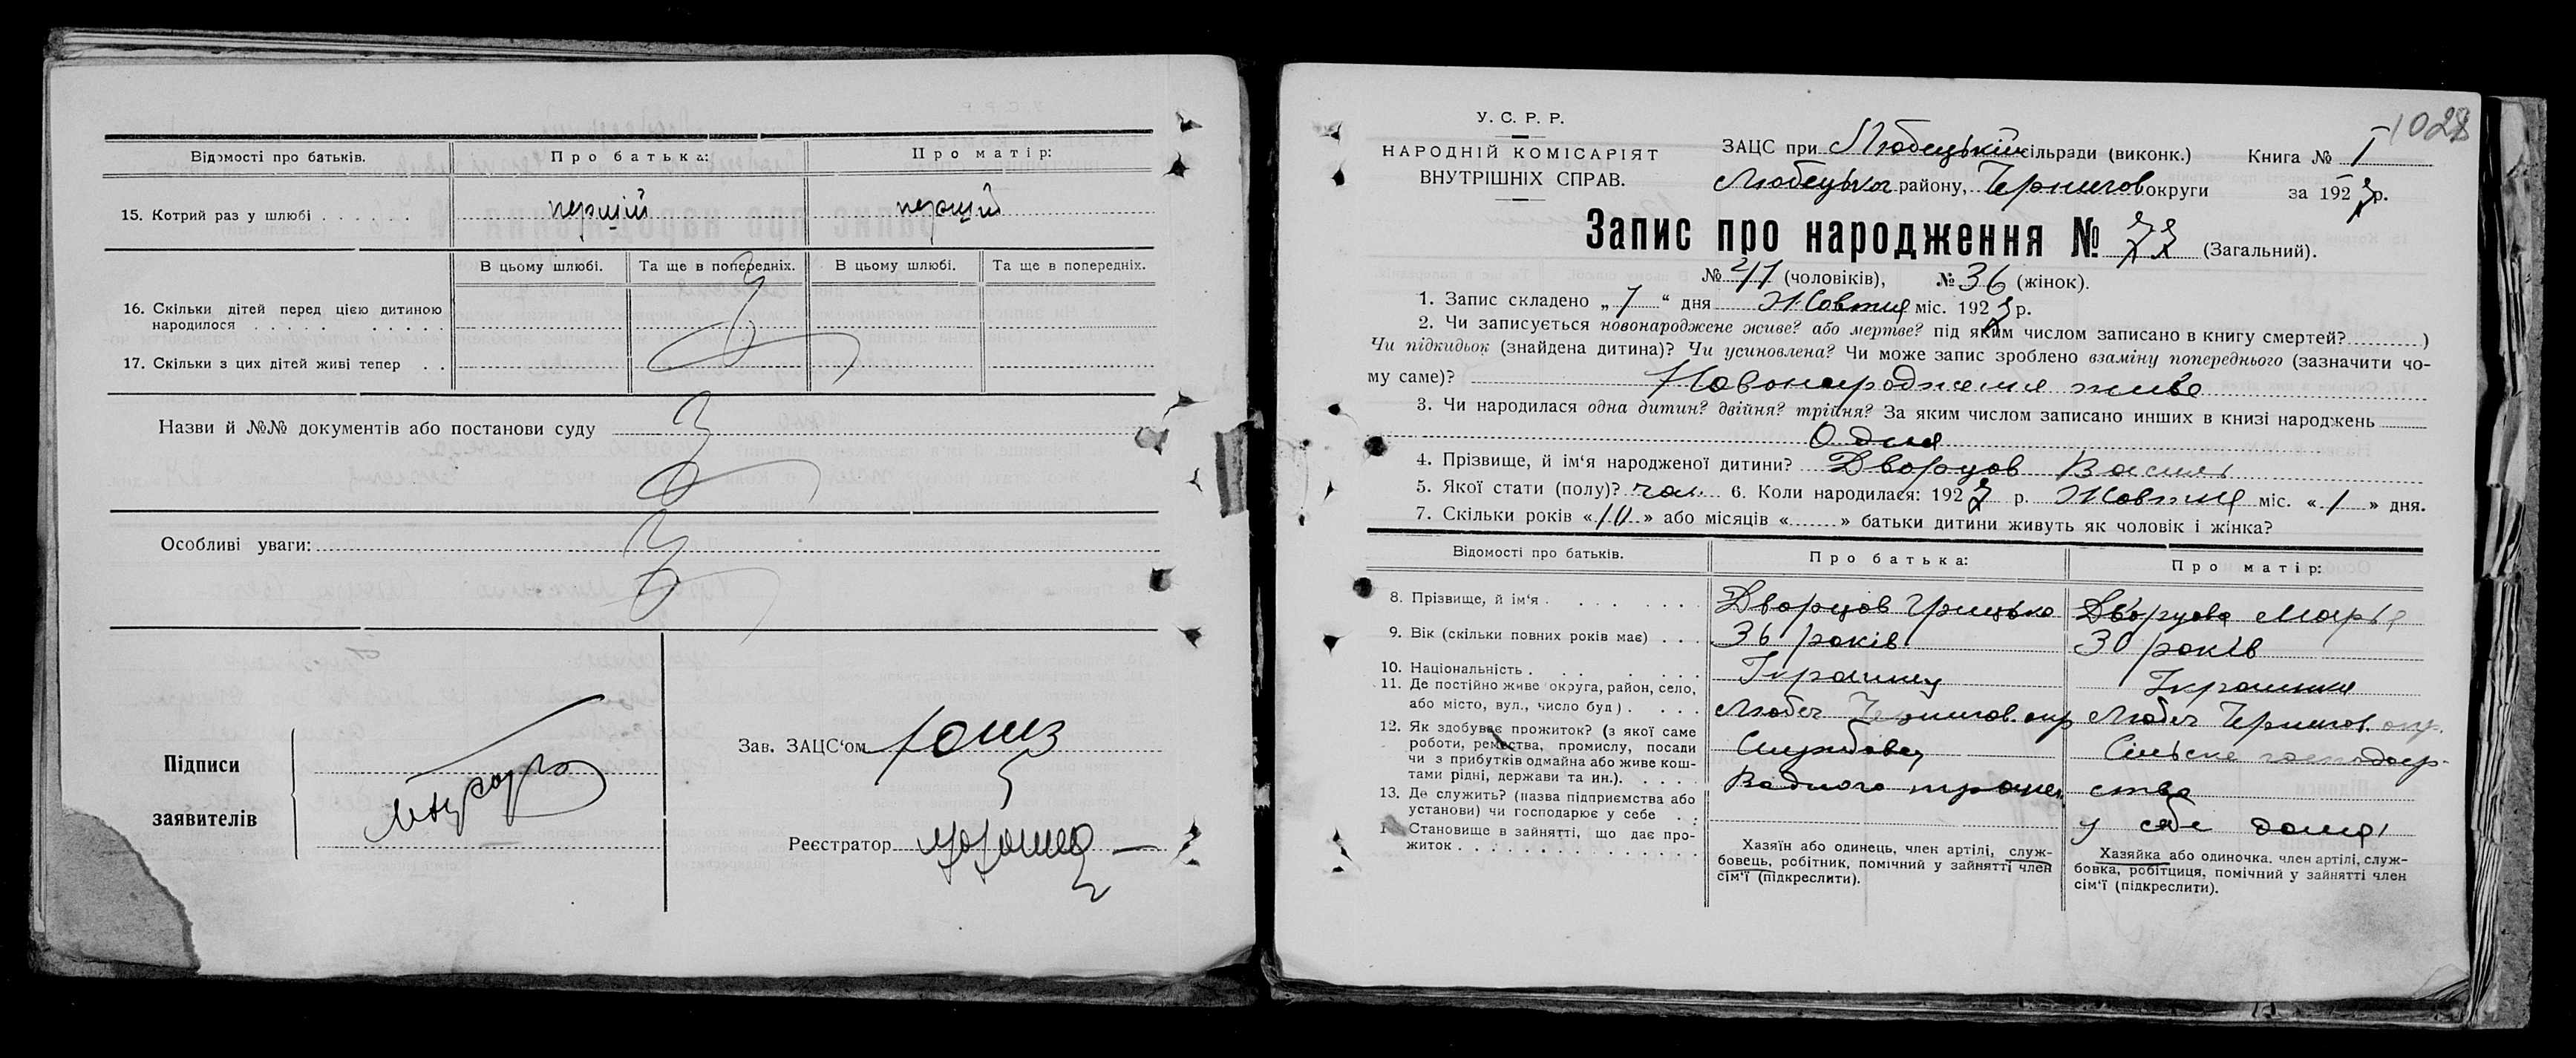 Відомості про батьків.
Про батька:
Про матір:
15. Котрий раз у шлюбі . . . . . .
перший
перший
В цьому шлюбі.
Та ще в попередніх.
В цьому шлюбі.
Та ще в попередніх.
16. Скільки дітей перед цією дитиною
народилося . . . . . . . . . .
17. Скільки з цих дітей живі тепер . .
Назви й №№ документів або постанови суду
Особливі уваги:
Підписи
заявителів
Зав. ЗАЦС‘ом
Реєстратор
1028
У. С. Р. Р.
НАРОДНІЙ КОМІСАРІЯТ
ВНУТРІШНІХ СПРАВ.
ЗАЦС при Любецький сільради (виконк.)
Книга № I
Любецького району, Чернигов округи
за 1927 р.
Запис про народження № 77 (Загальний).
№ 41 (чоловіків), № 36 (жінок).
1. Запис складено „ 7 “ дня Жовтня міс. 1927 р.
2. Чи записується новонароджене живе? або мертве? під яким числом записано в книгу смертей? )
Чи підкидьок (знайдена дитина)? Чи усиновлена? Чи може запис зроблено взаміну попереднього (зазначити чо-
му саме)? Новонароджения живе
3. Чи народилася одна дитин? двійня? трійня? За яким числом записано инших в книзі народжень
Одна
4. Прізвище, й ім‘я народженої дитини? Дворцов Василь
5. Якої стати (полу)? чол. 6. Коли народилася: 1927 р. Жовтня міс. « 1 » дня.
7. Скільки років « 10 » або місяців « » батьки дитини живуть як чоловік і жінка?
Відомості про батьків.
Про батька:
Про матір:
8. Прізвище, й ім‘я . . . . .
Дворцов Грицько
Дворцова Марья
9. Вік (скільки повних років має) . . .
36 років
30 років
10. Національність . . . . .
Українец
Українка
11. Де постійно живе округа, район, село,
або місто, вул., число буд) . . . .
Любеч Чернигов. окр
Любеч Чернигов. окр.
12. Як здобуває прожиток? (з якої саме
роботи, ремества, промислу, посади
чи з прибутків одмайна або живе кош-
тами рідні, держави та ин.). . . . .
Службовец
Сільске господар-
ство
13. Де служить? (назва підприємства або
установи) чи господарює у себе . .
Водного транс.
у себе дома
Становище в зайнятті, що дає про-
житок . . . . . . . . . . . . . .
Хазяїн або одинець, член артілі, служ-
бовець, робітник, помічний у зайнятті член
сім‘ї (підкреслити).
Хазяйка або одиночка. член артілі, служ-
бовка, робітциця, помічний у зайнятті член
сім‘ї (підкреслити).